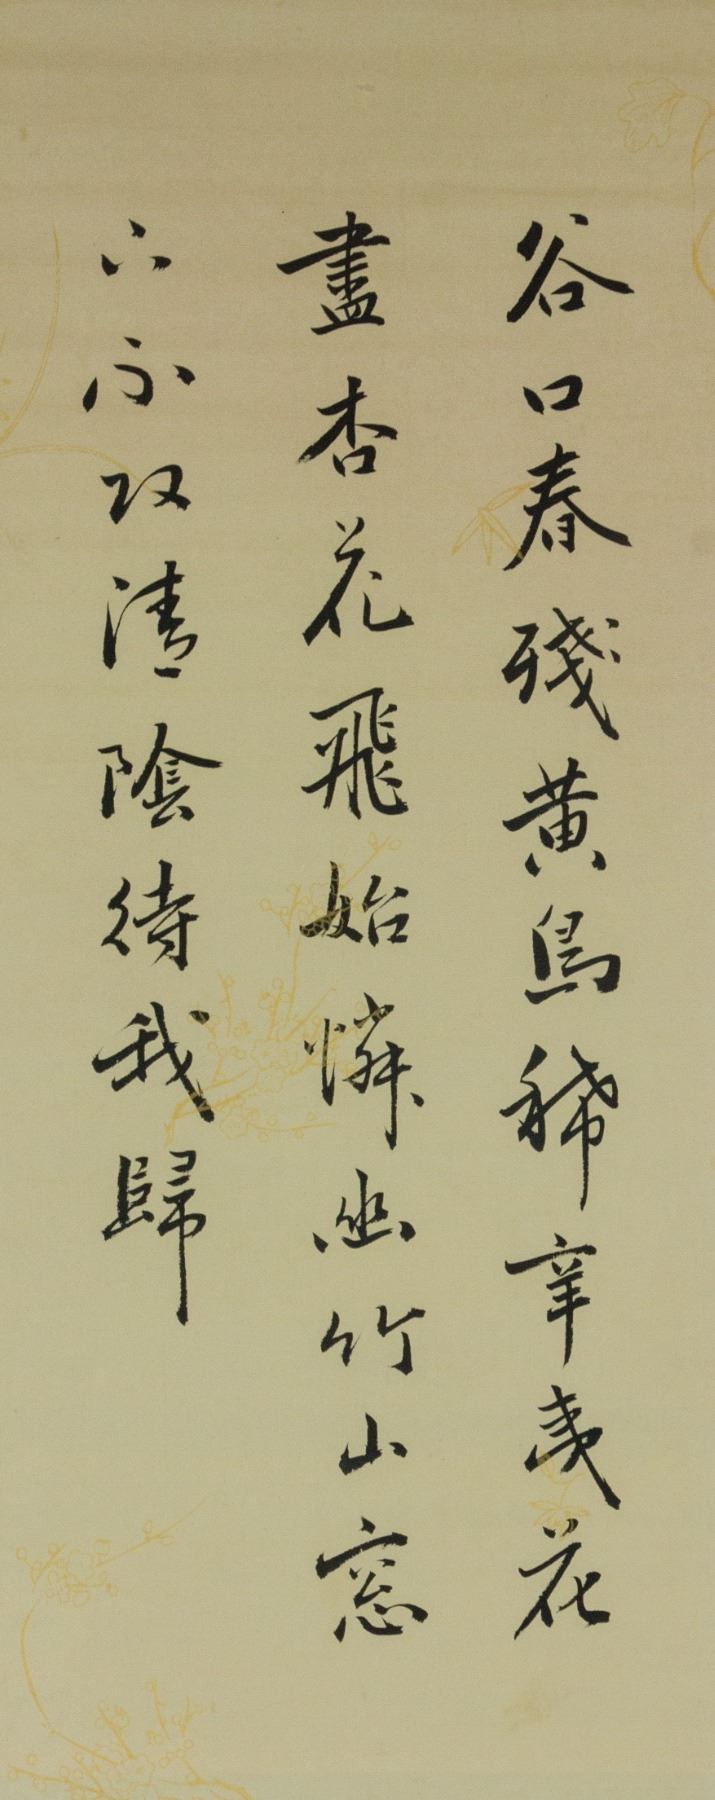 谷口春殘黃鳥稀辛夷花
盡杏花飛始憐幽竹山窓
下不改清陰待我歸